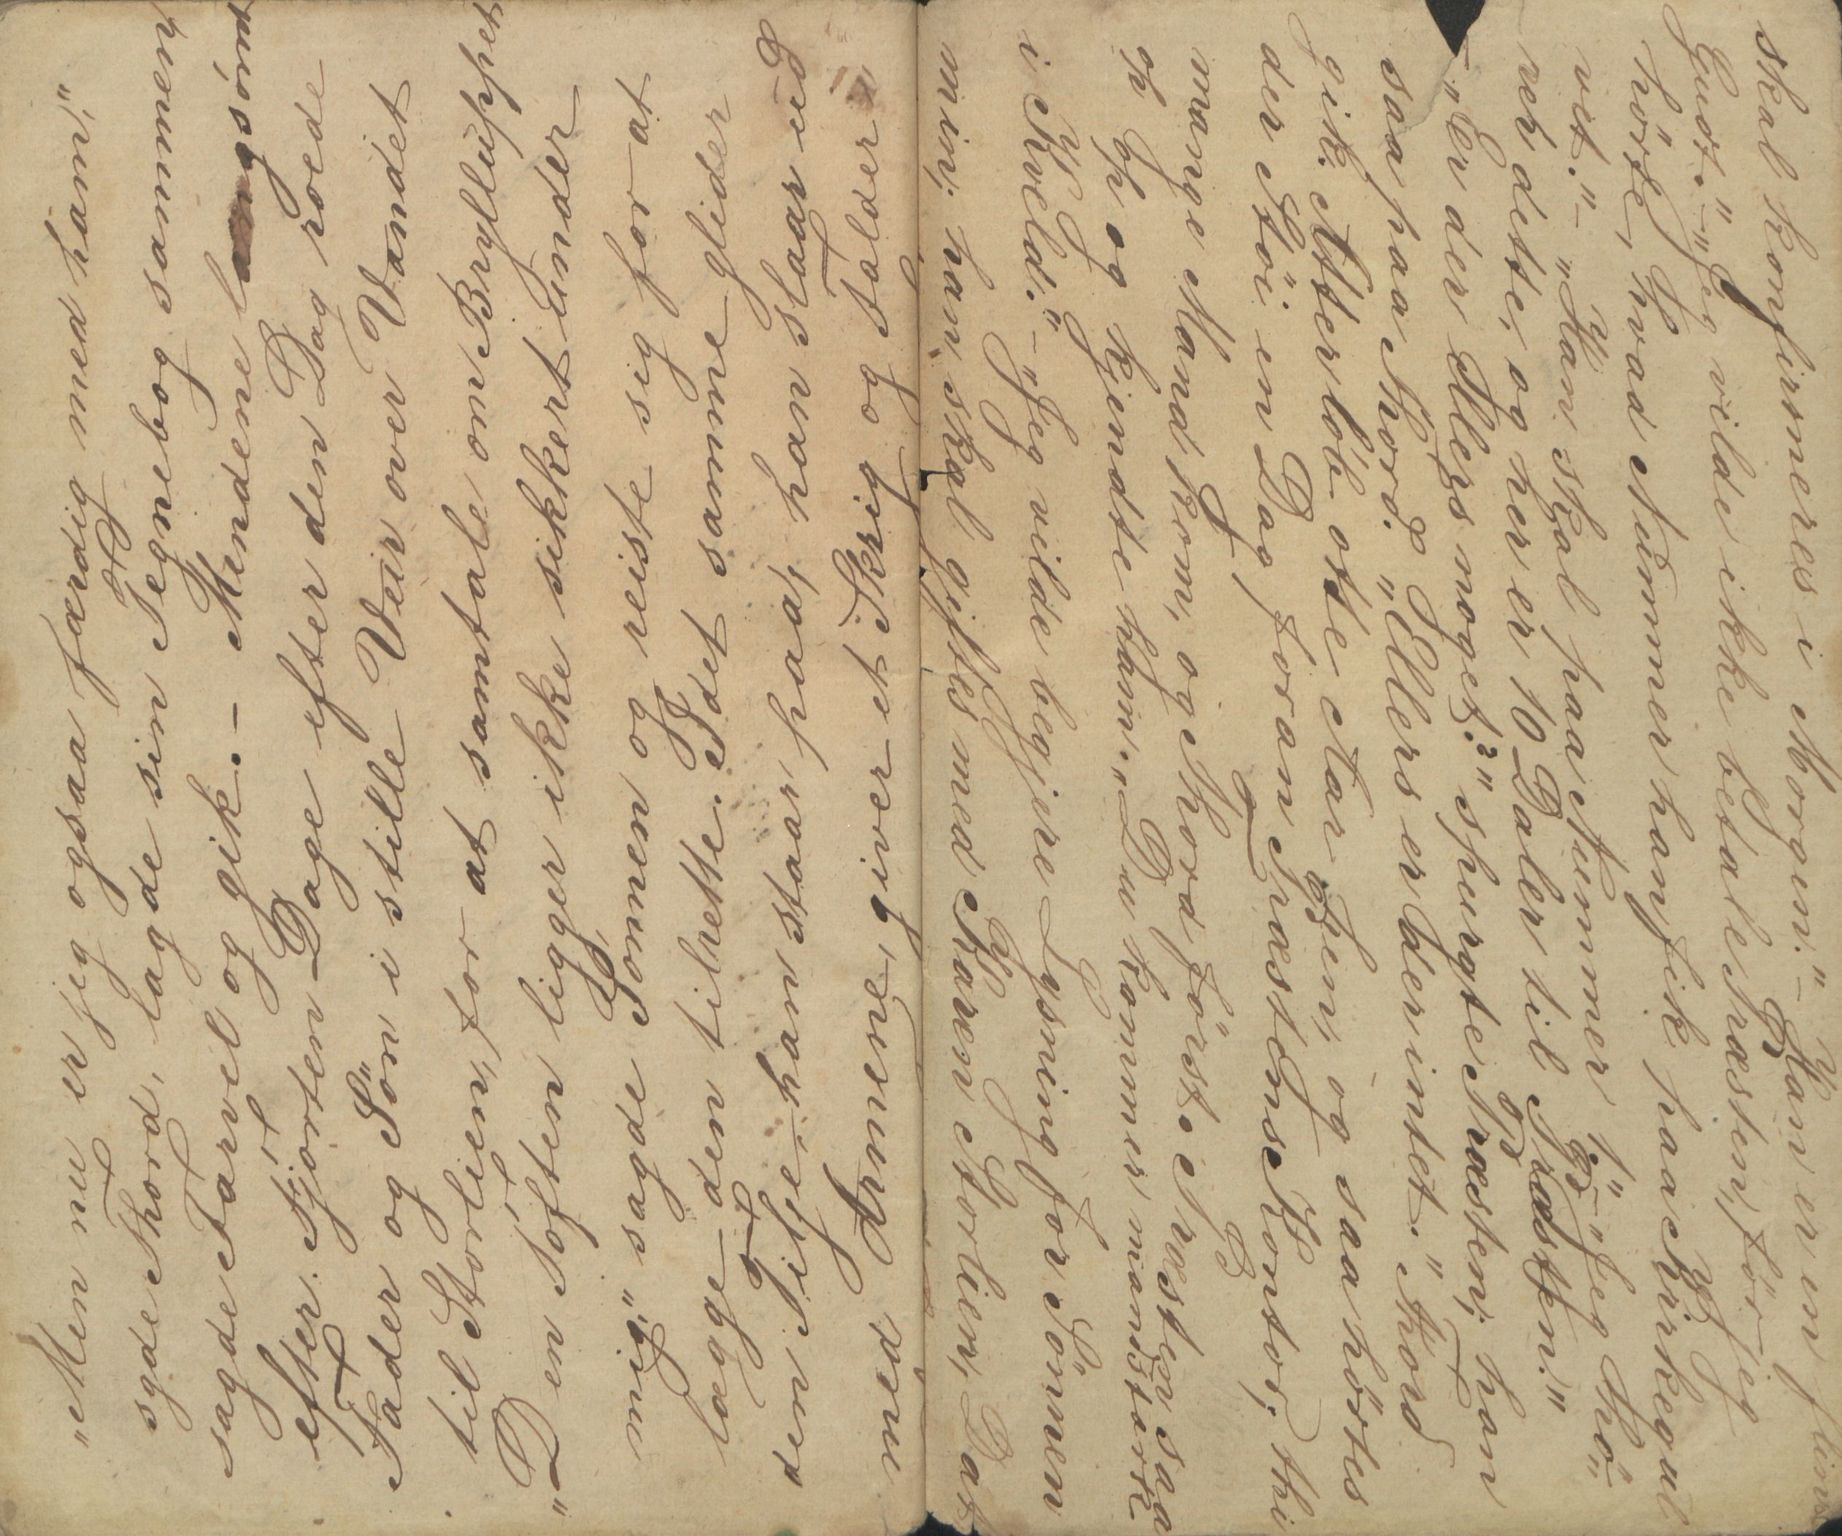 skal konfirmeres i Morgen."– Han er en flink
Gut."–„Jeg vilde ikke betale Præsten, för jeg
hörte, hvad Nummer han fik paa Kirkegul
vet."– „Han skal paa Nummer 1"–„Jeg hö-
rer dette, og her er 10 Daler til Præsten."
–„Er der Ellers noget?" spurgte Præsten; han
saa paa Thord. „Ellers er der intet." Thord
gik. Atter löb otte Aar hen, og saa hörtes
der Stöi en Dag foran Præstens Kontor; thi
mange Mand kom, og Thord först. Præsten saa
op og kjendte ham. „Du kommer mandsterk
i Kveld."–„Jeg vilde begjere Lysning for Sönnen
min; han skal giftes med Karen Storlien, Dat
„Men nu er jeg ogsaa færdig med ham,"
sgde Thord, lagde sin Tegnebog sammen,
sagde Farvel og gik. – Mendene langsomt
efter. Fjorten Dage efter den Dag roede
Fader og Sön i stille Veir over Vandet
til Storlien, for at samtale om Brylluppet
„Den Toften ligger ikke sikkert under
mig" sagde Sönnen og reiste sig for at
lægge den tilrette. I det samme glider
den Tilje han staar paa; han slaar ud
med Armene, giver et Skrig og falder